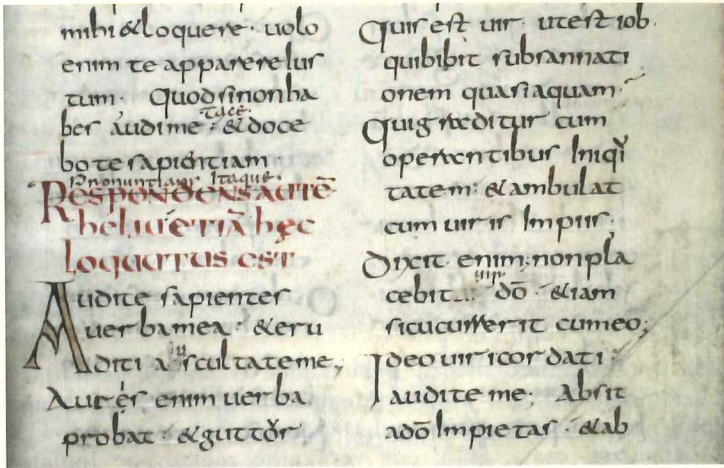 mihi & loquere· uolo
enim te apparere ius
tum· Quod si non ha
tace·
bes audi me· & doce
bo te sapientiam
Pronuntians Itaque·
Respondens autē
heliu etiā hęc
loquutus est
Audite sapientes
uerba mea· & eru
diti auscultate me;
Aures enim uerba
probat· & guttur
Quis est uir· ut est iob·
qui bibit subsannati
onem quasi aquam·
Qui graditur cum
operantibus Iniqui
tatem· & ambulat
cum uiris Impiis·
Dixit enim· non pla
uir
cebit dō· &iam
si cucurrerit cum eo;
Ideo uiri cordati·
audite me; Absit
a dō Impietas· & ab